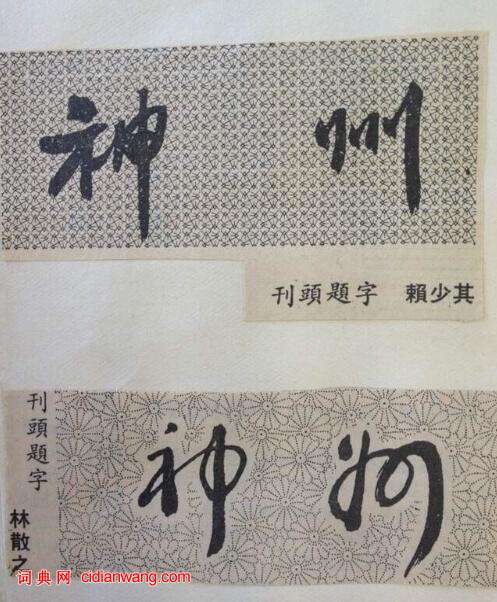 神州
刊頭題字 賴少其
刊頭題字 林散之
神州
词典网 cidianwang.com